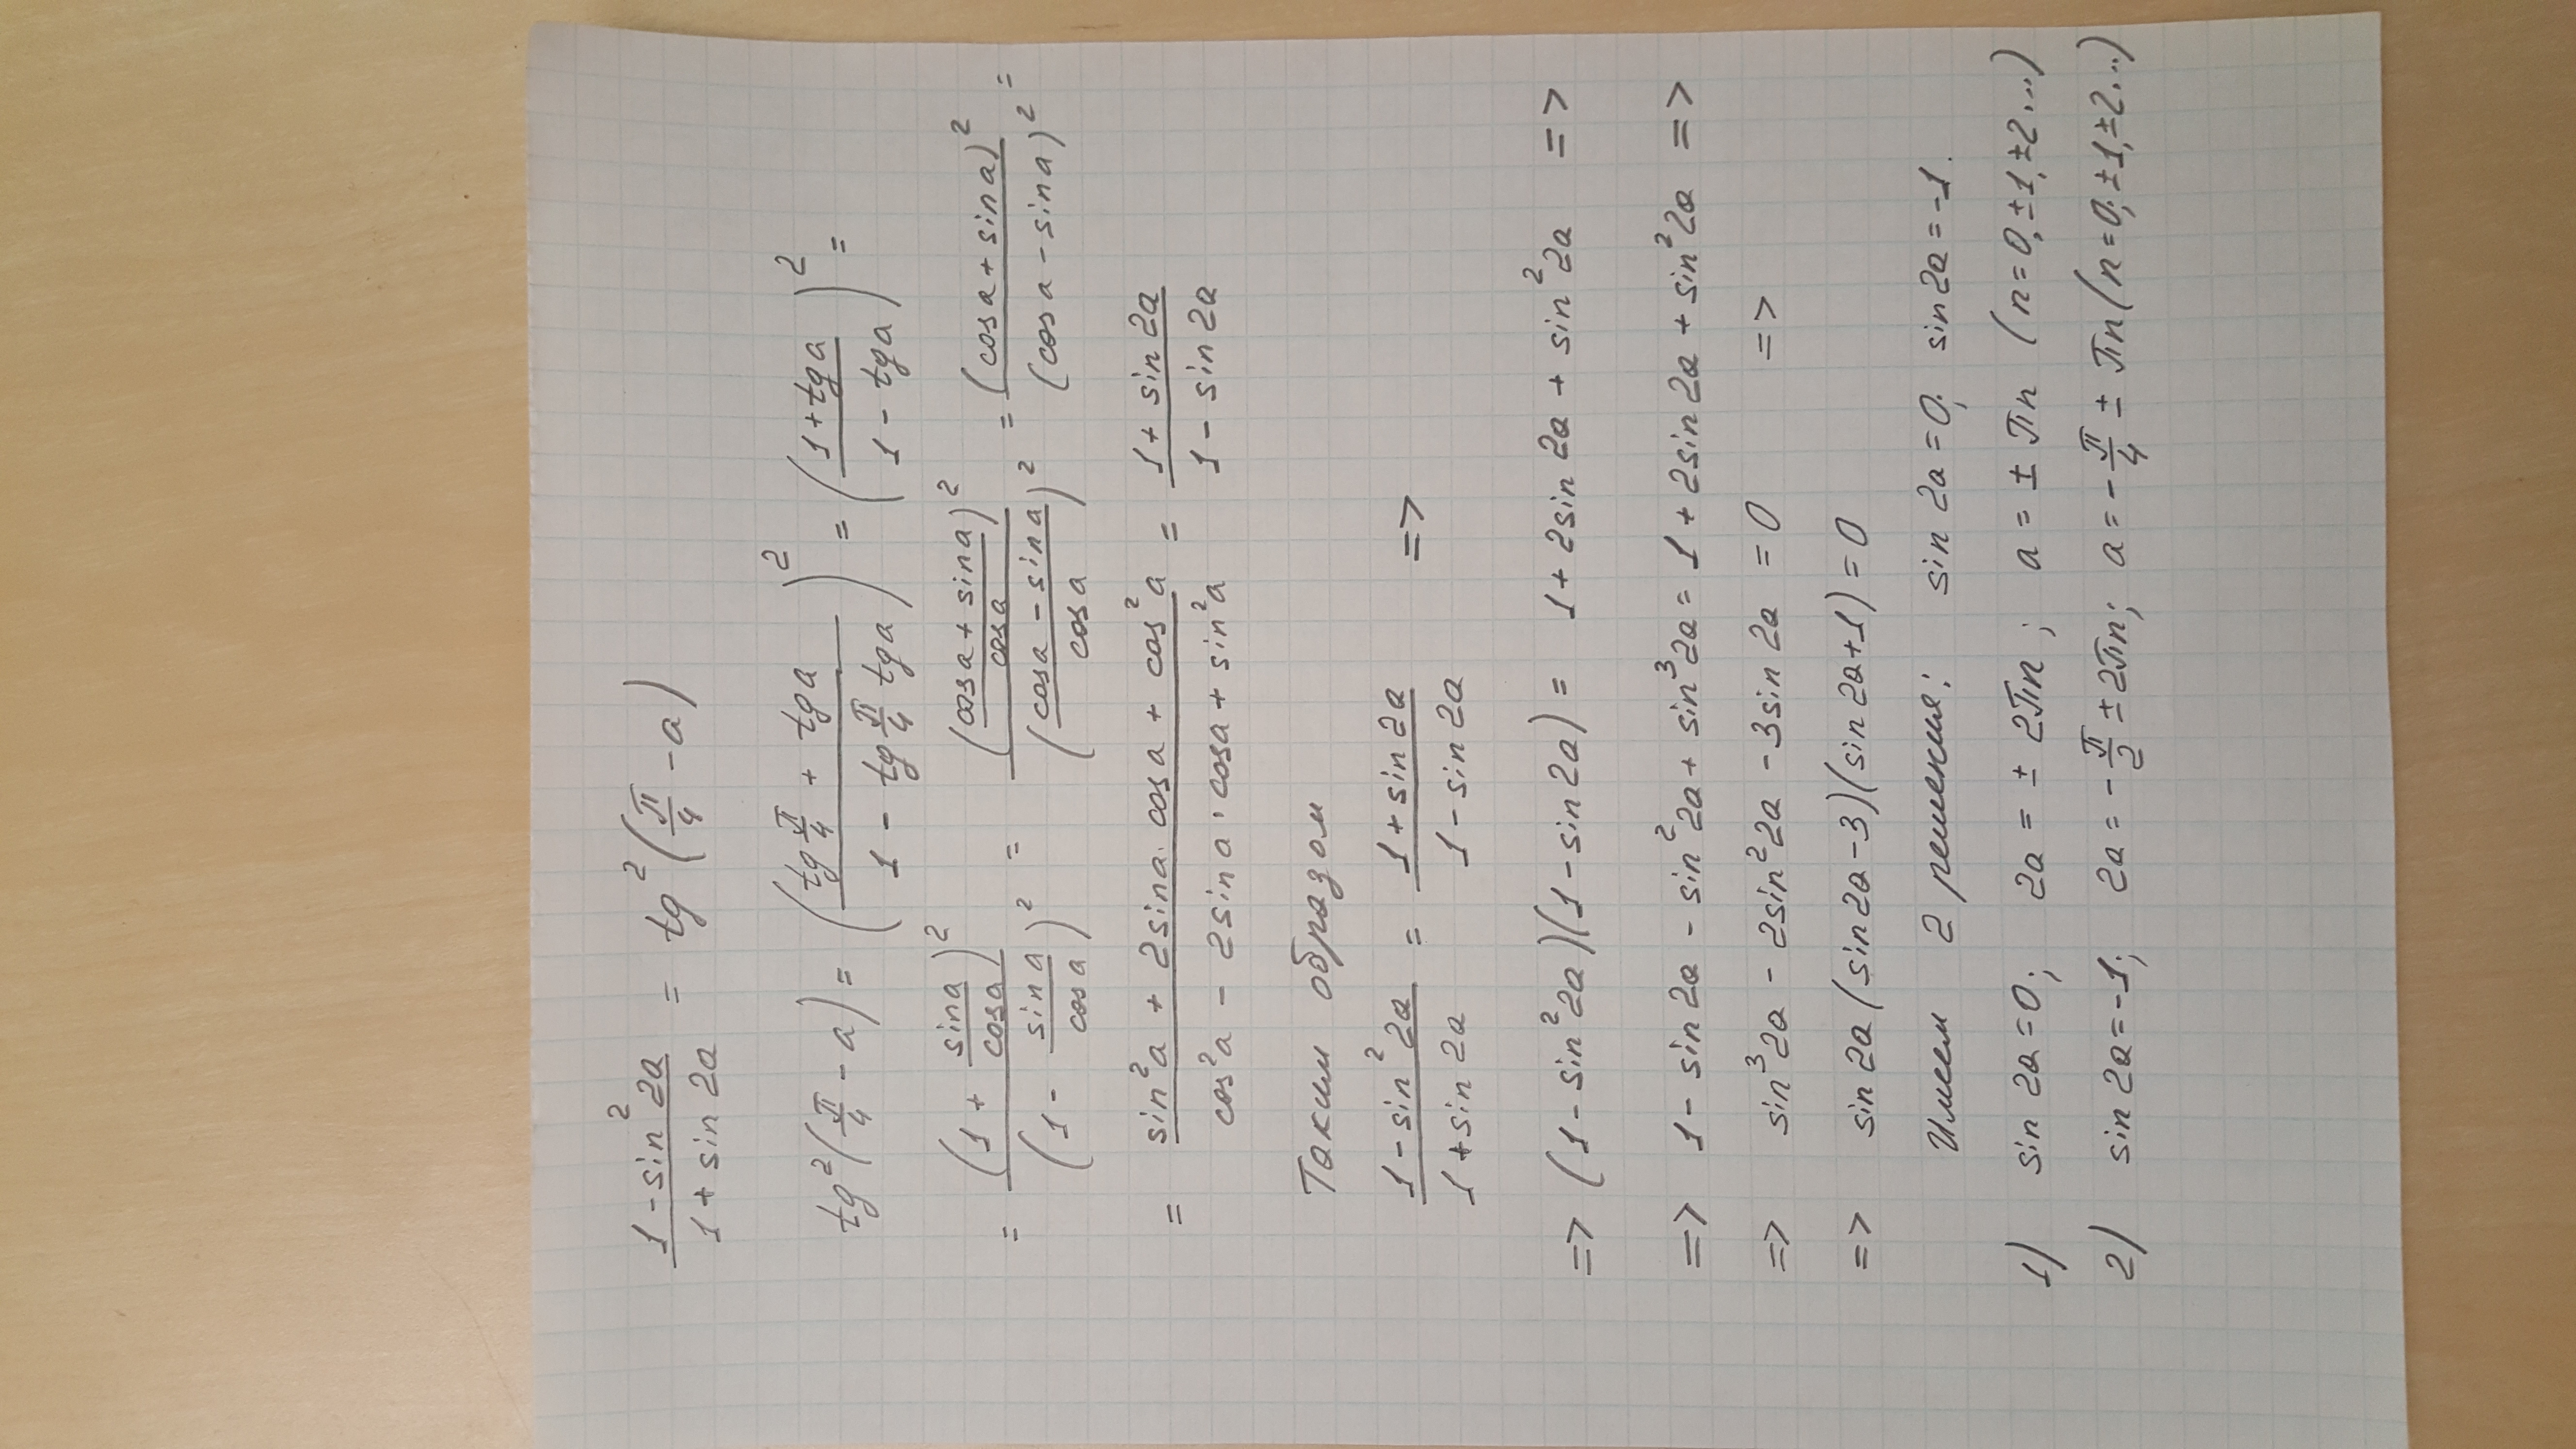 (1 - sin² 2a)/(1 + sin 2a) = tg²(π/4 - a)
tg²(π/4 - a) = ((tg π/4 + tg a)/(1 - tg π/4 tg a))² = ((1 + tg a)/(1 - tg a))² =
= (1 + sin a/cos a)²/(1 - sin a/cos a)² = ((cos a + sin a)/cos a)²/((cos a - sin a)/cos a)² = (cos a + sin a)²/(cos a - sin a)² =
= (sin² a + 2 sin a · cos a + cos² a)/(cos² a - 2 sin a · cos a + sin² a) = (1 + sin 2a)/(1 - sin 2a)
Таким образом
(1 - sin² 2a)/(1 + sin 2a) = (1 + sin 2a)/(1 - sin 2a) =>
=> (1 - sin² 2a)(1 - sin 2a) = 1 + 2 sin 2a + sin² 2a =>
=> 1 - sin 2a - sin² 2a + sin³ 2a = 1 + 2 sin 2a + sin² 2a =>
=> sin³ 2a - 2 sin² 2a - 3 sin 2a = 0 =>
=> sin 2a (sin 2a - 3)(sin 2a + 1) = 0
Имеем 2 решения: sin 2a = 0; sin 2a = -1.
1) sin 2a = 0; 2a = ± 2πn; a = ± πn (n = 0, ±1, ±2...)
2) sin 2a = -1; 2a = -π/2 ± 2πn; a = -π/4 ± πn (n = 0; ±1, ±2...)